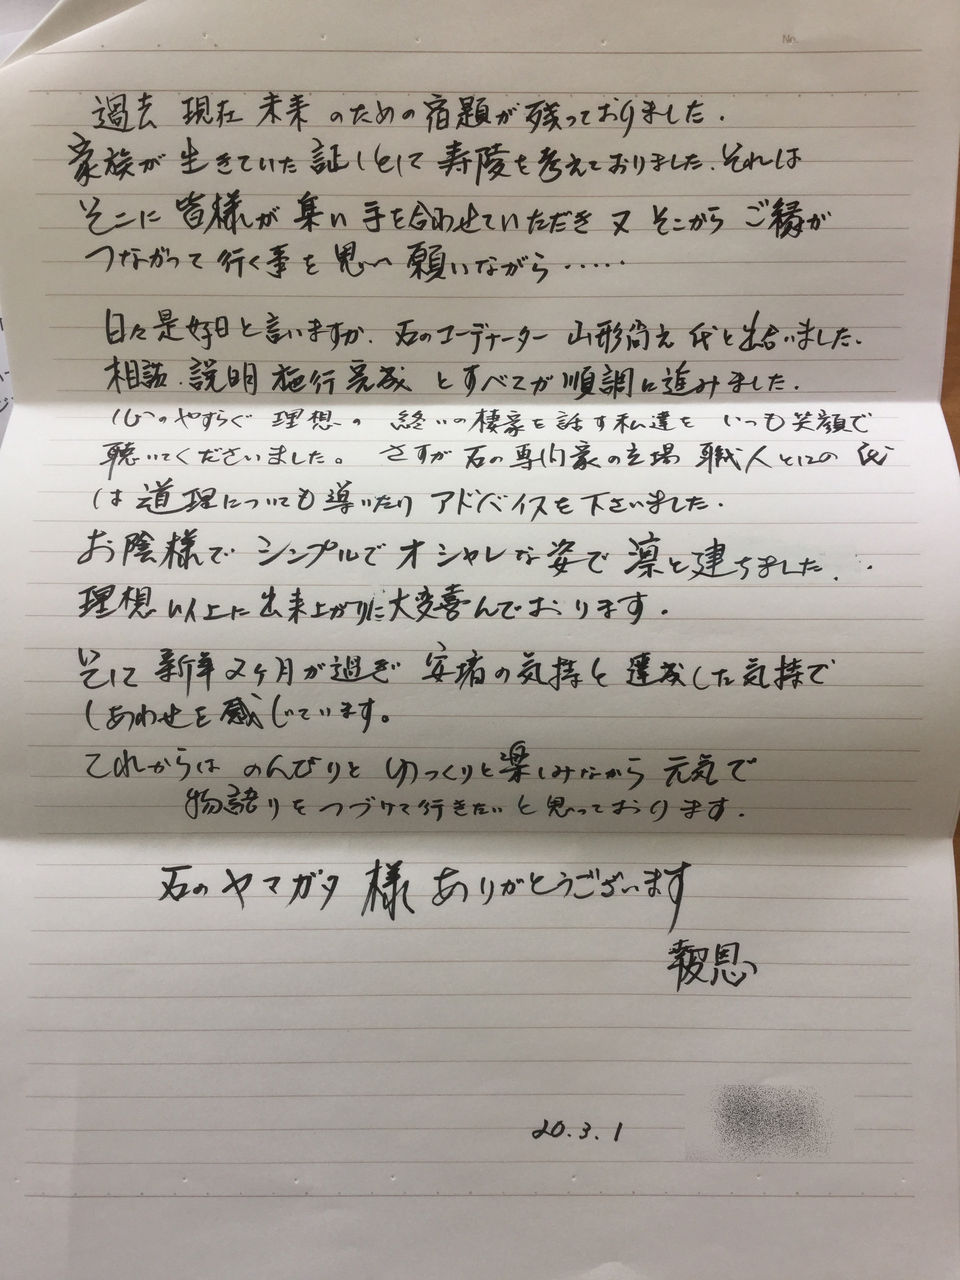 No.
過去 現在 未来 のための宿題が残っておりました.
家族が生きていた証しとして寿陵を考えておりました.それは
そこに皆様が集い手を合わせていただき又そこからご縁が
つながって行く事を思い願いながら‥‥‥
日々是好日と言いますが.石のコーディナーター山形尚之氏と出合いました.
相談.説明施行完成とすべてが順調に進みました.
心のやすらぐ理想の終いの棲家を話す私達をいつも笑顔で
聴いてくださいました。さすが石の専門家の立場職人としての氏
は道理についても導いたりアドバイスを下さいました.
お陰様でシンプルでオシャレな姿で凛と建ちました..
理想以上に出来上がりに大変喜んでおります.
そして新年2ケ月が過ぎ安堵の気持と達成した気持で
しあわせを感じています。
これからはのんびりとゆっくりと楽しみながら元気で
物語りをつづけて行きたいと思っております.
石のヤマガタ様ありがとうございます
報恩
20.3.1